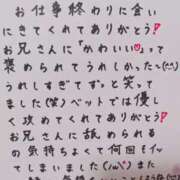 お仕事終わりに会い
にきてくれてありがとう!
お兄さんに「かわいい♡」って
褒められてうれしかった(^^)
うれしすぎてずっと笑って
ました(笑)ベットでは優し
く攻めてくれてありがとう!
お兄さんに舐められる
の気持ちよくて何回もイッ
てしまいました(ﾉω`)また